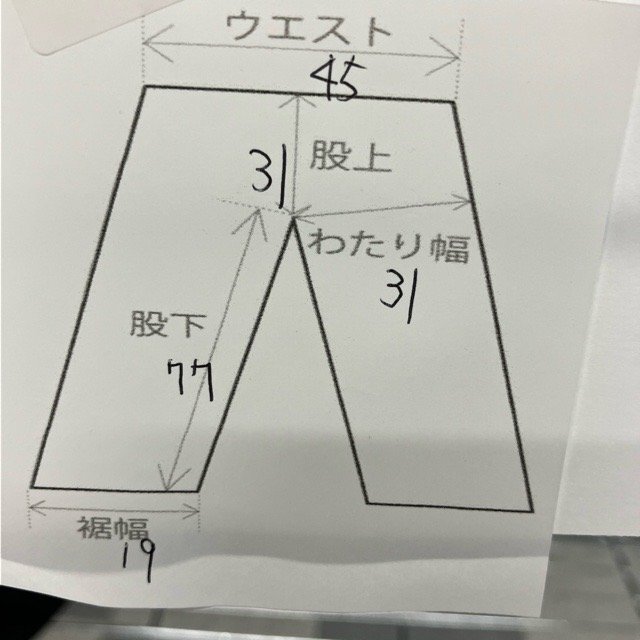 ウエスト
45
31
股上
わたり幅
31
股下
77
裾幅
19